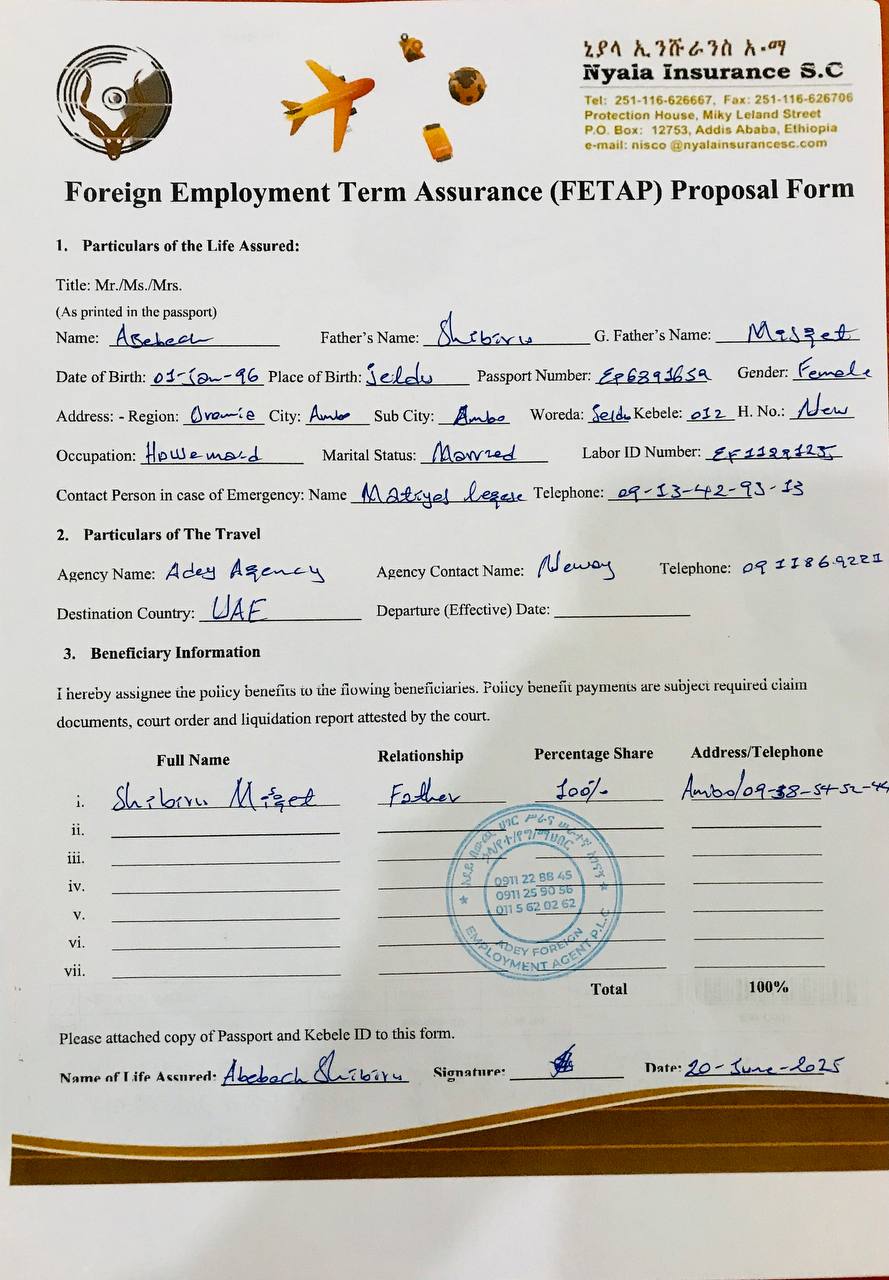 ኒያላ ኢንሹራንስ አ.ማ
Nyala Insurance S.C
Tel: 251-116-626667, Fax: 251-116-626706
Protection House, Miky Leland Street
P.O. Box: 12753, Addis Ababa, Ethiopia
e-mail: nisco @nyalainsurancesc.com
Foreign Employment Term Assurance (FETAP) Proposal Form
1. Particulars of the Life Assured:
Title: Mr./Ms./Mrs.
(As printed in the passport)
Name: Abebech Father's Name: Shibiru G. Father's Name: Misget
Date of Birth: 01-Jan-96 Place of Birth: Jeldu Passport Number: Gender: Female
Address: - Region: Oromia City: Ambo Sub City: Ambo Woreda: Jeldu Kebele: 012 H. No.: New
Occupation: Housemaid Marital Status: Married Labor ID Number:
Contact Person in case of Emergency: Name Telephone: 09-13-42-93-13
2. Particulars of The Travel
Agency Name: Adey Agency Agency Contact Name: Neway Telephone: 0911869221
Destination Country: UAE Departure (Effective) Date:
3. Beneficiary Information
I hereby assignee the policy benefits to the flowing beneficiaries. Policy benefit payments are subject required claim
documents, court order and liquidation report attested by the court.
Full Name Relationship Percentage Share Address/Telephone
i. Shibiru Misget Father 100% Ambo/09-38-54-52-44
ii.
iii.
iv.
v.
vi.
vii.
0911 22 88 45
0911 25 90 56
011 5 62 02 62
ADEY FOREIGN
EMPLOYMENT AGENT P.L.C
Total 100%
Please attached copy of Passport and Kebele ID to this form.
Name of Life Assured: Abebech Shibiru Signature: Date: 20-June-2025